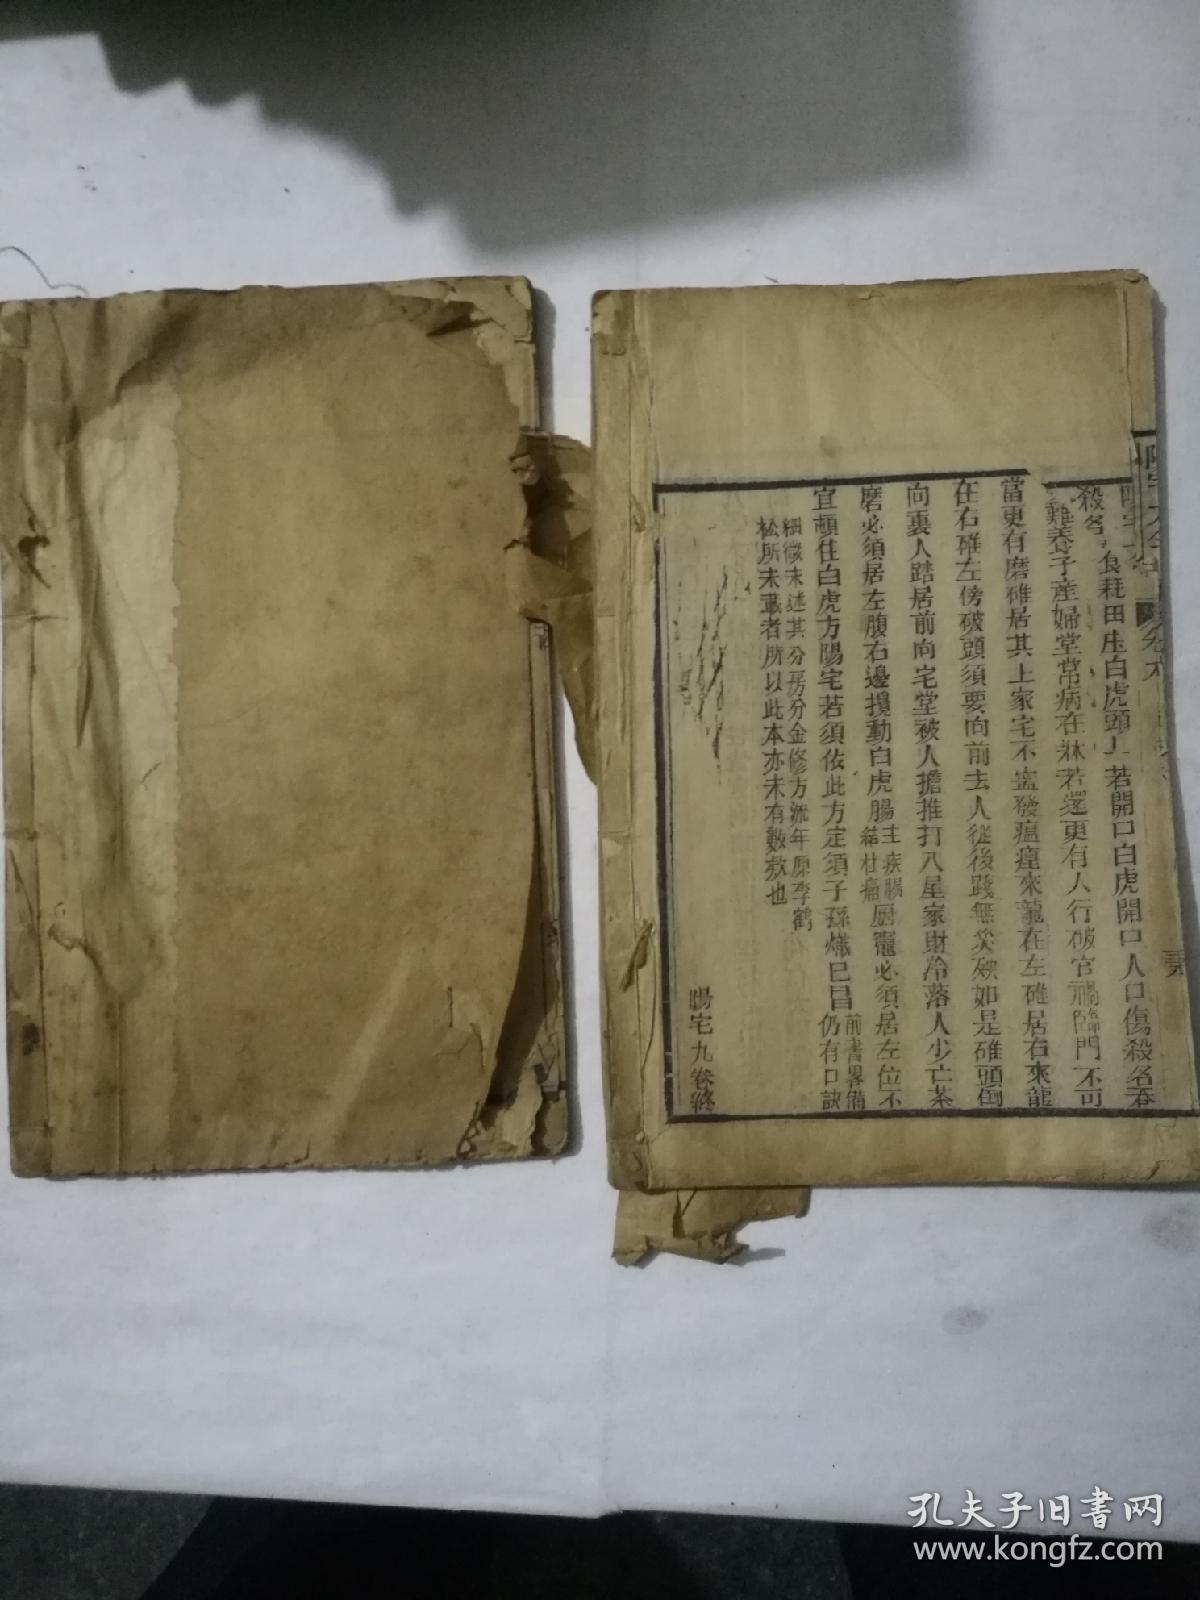 食耗田庄白虎頭上若開口白虎開口人口傷殺名吞
殺名
難養子產婦堂常病在牀若還更有人行破官禍臨門不可
當更有磨碓居其上家宅不寧發瘟癀來龍在左碓居右來龍
在右碓左傍破頭須要向前去人從後踐無災殃如是碓頭倒
向裏人踏居前向宅堂被人擔推打八星家財冷落人少亡茶
磨必須居左腹右邊損動白虎腸主疾腸結牡瘤厨竈必須居左位不
宜頓住白虎方陽宅若須依此方定須子孫熾巳昌前書畧備仍有口訣
細微未述其分房分金修方流年原李鶴
松所未載者所以此本亦未有數教也
陽宅九卷終
孔夫子旧书网
www.kongfz.com